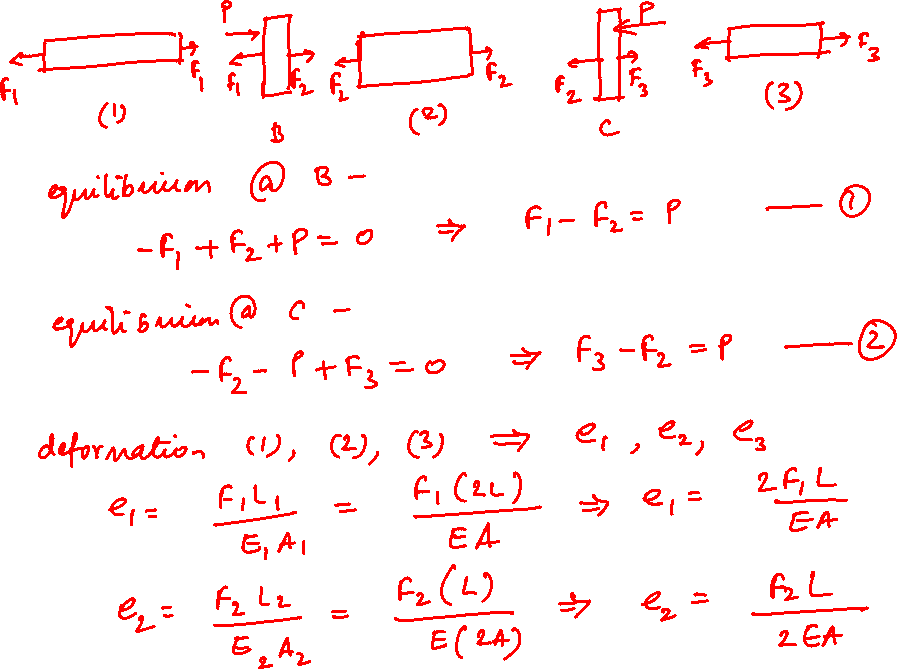 P P
F₁ F₁ F₁ F₂ F₂ F₂ F₂ F₃ F₃ F₃
(1) B (2) C (3)
equilibrium @ B -
-F₁ + F₂ + P = 0 ⇒ F₁ - F₂ = P — ①
equilibrium @ C -
-F₂ - P + F₃ = 0 ⇒ F₃ - F₂ = P — ②
deformation (1), (2), (3) ⇒ e₁, e₂, e₃
e₁ = F₁L₁/E₁A₁ = F₁(2L)/EA ⇒ e₁ = 2F₁L/EA
e₂ = F₂L₂/E₂A₂ = F₂(L)/E(2A) ⇒ e₂ = F₂L/2EA